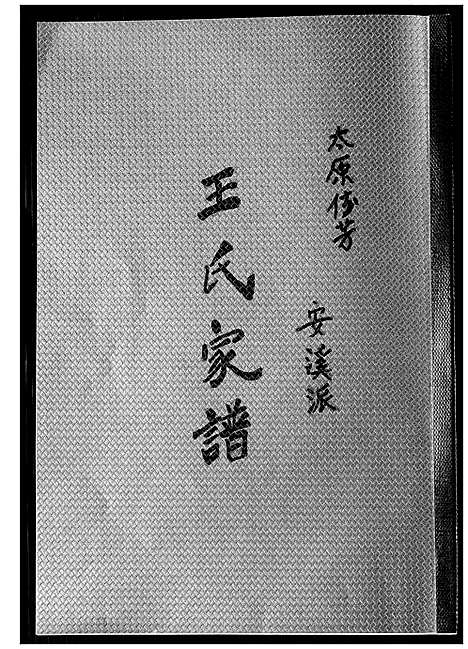 太原传芳
安溪派
王氏家譜